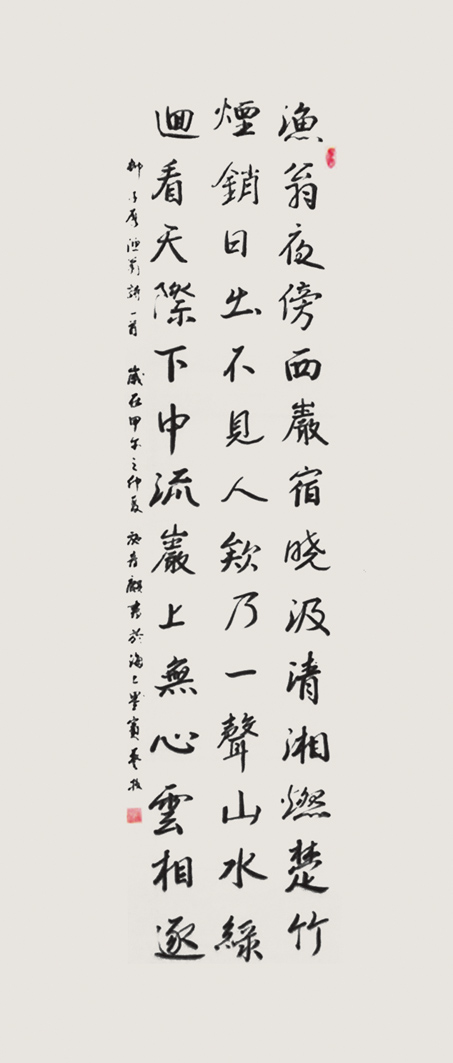 漁翁夜傍西巖宿曉汲清湘燃楚竹
煙銷日出不見人欸乃一聲山水綠
迴看天際下中流巖上無心雲相逐
柳子厚漁翁詩一首 歲在甲午之仲夏 書於海上